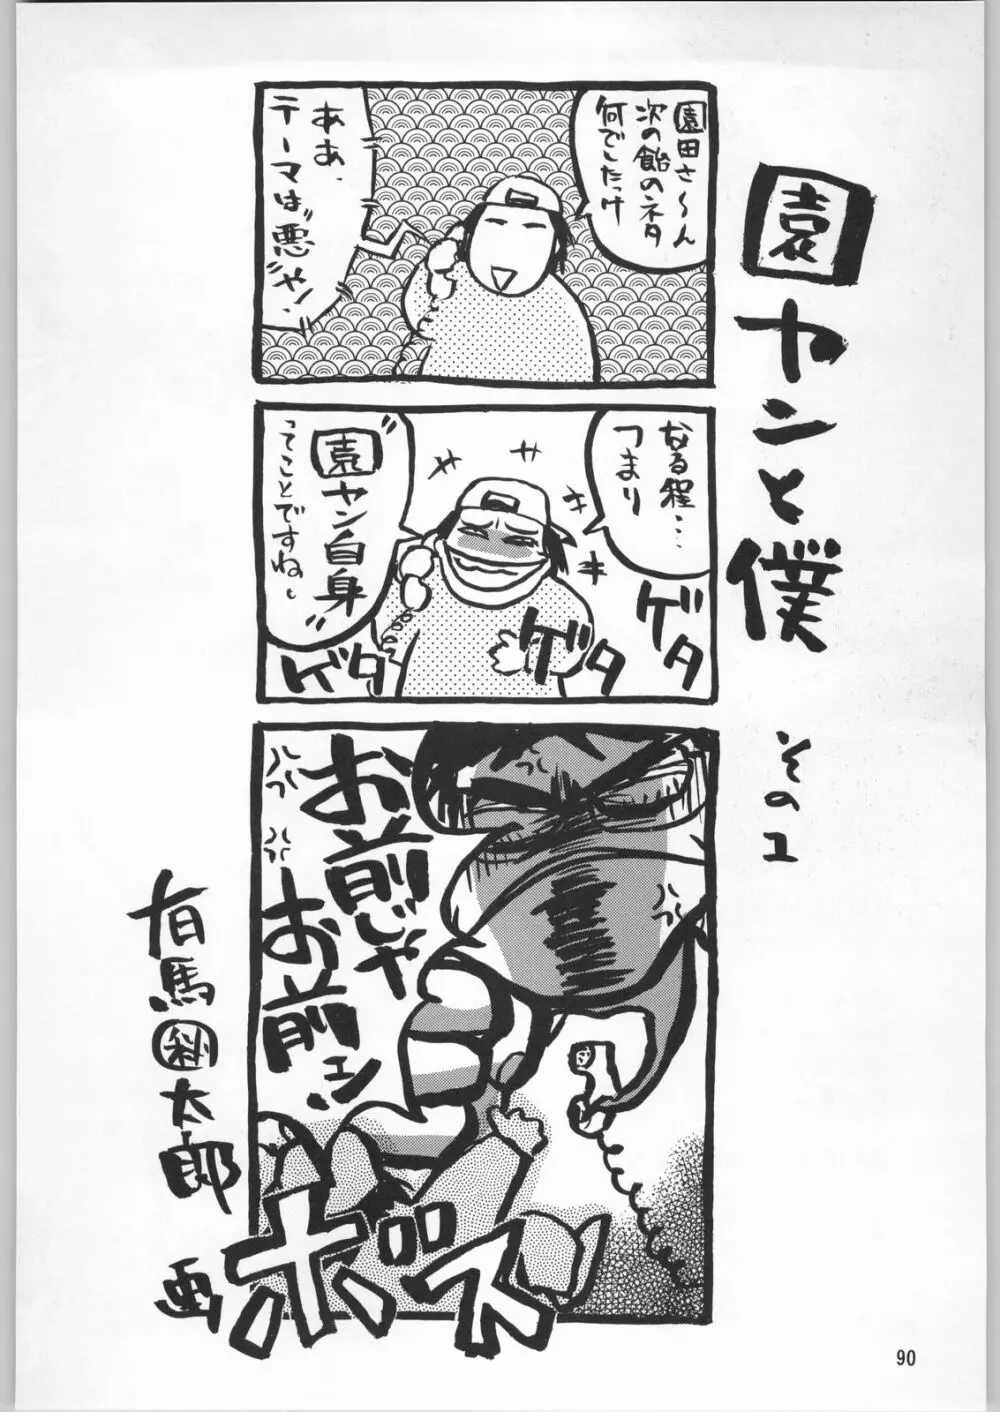 園ヤンと僕
その1
園田さ～ん
次の飴のネタ
何でしたっけ
ああ、
テーマは〝悪〟や!
なる程…
つまり
〝園ヤン自身〟
ってことですね。
ゲタ
ゲタ
ゲタ
お前じゃ
お前ェ!
ボズ
有馬㊙太郎
画
90